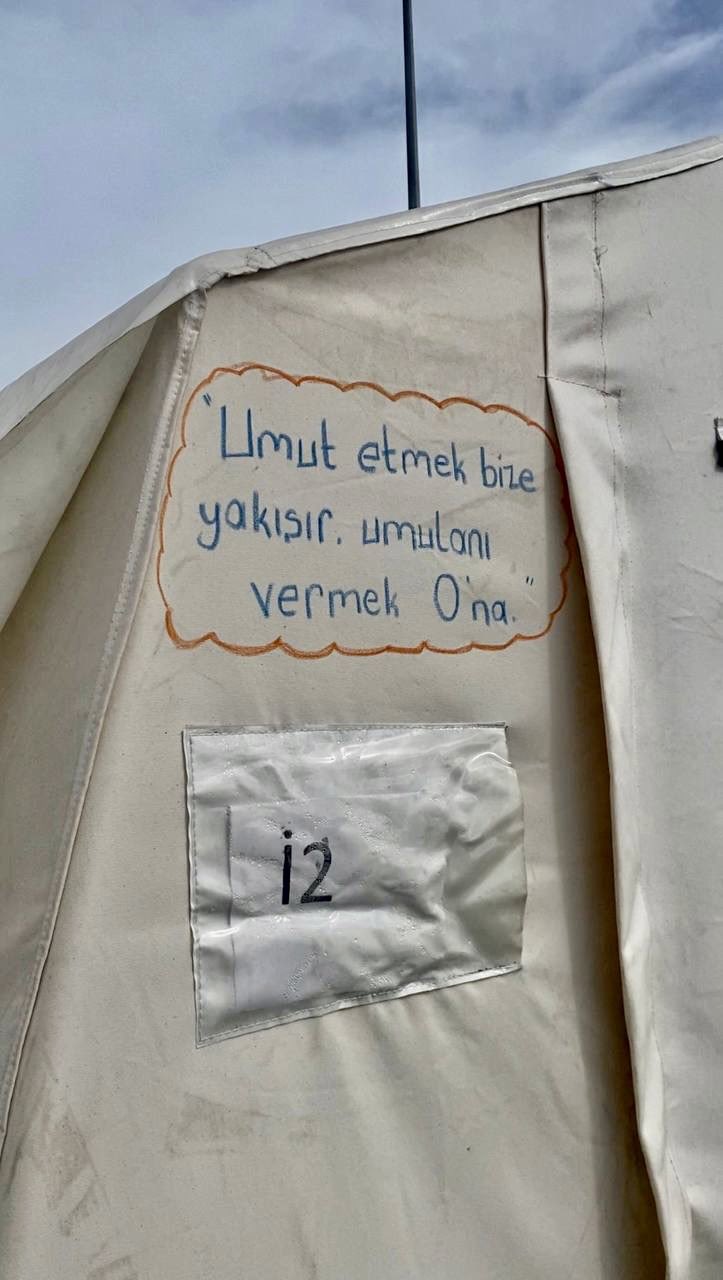 "Umut etmek bize
yakışır, umulanı
vermek O'na."
i2